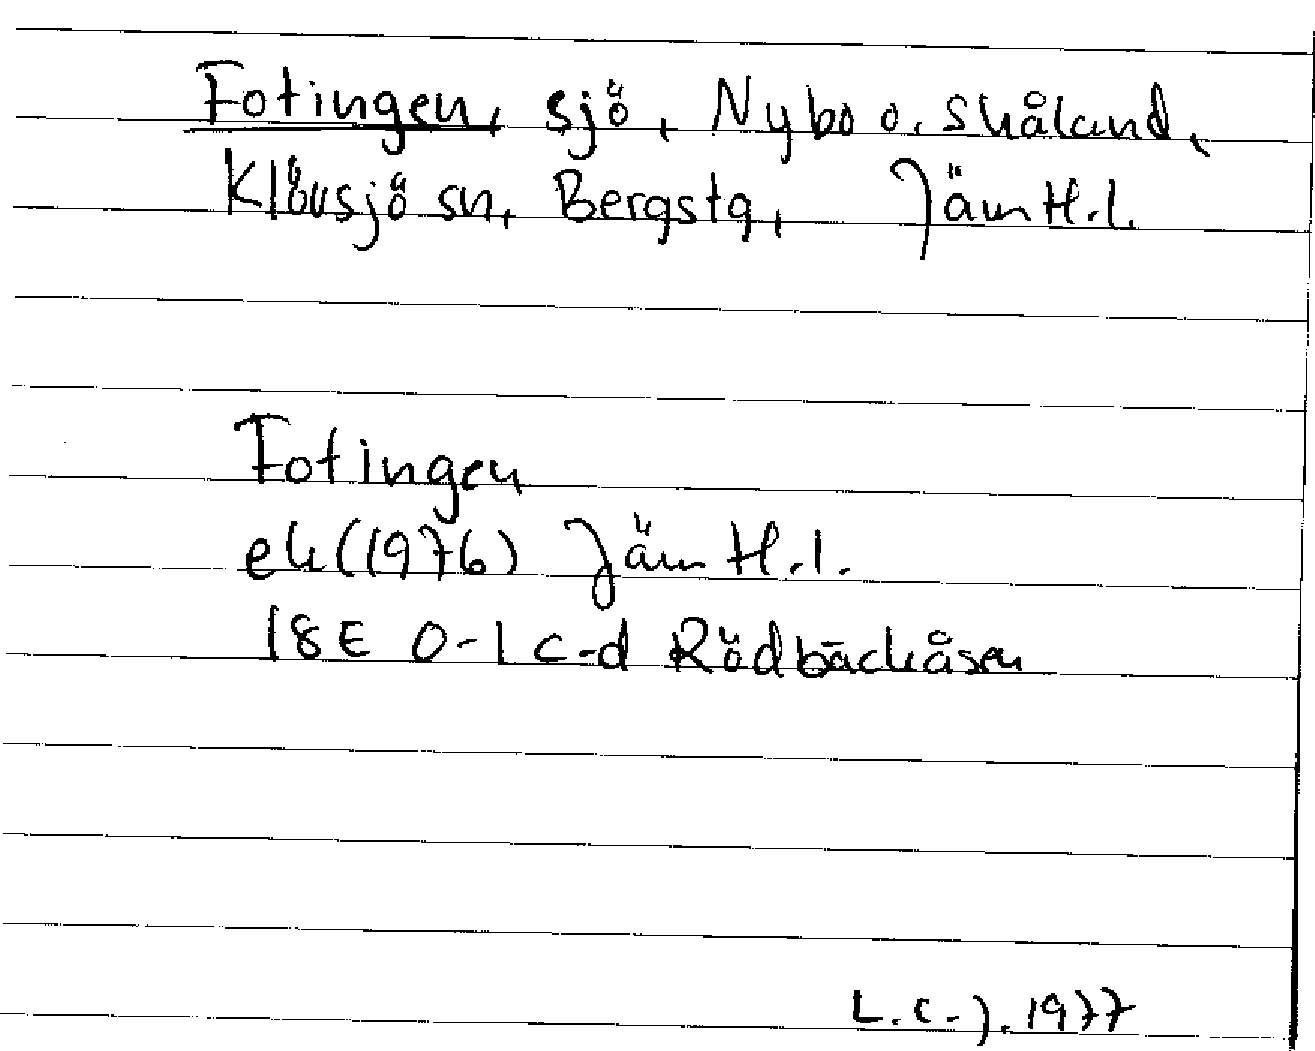 Fotingen, sjö, Nybo o. Skåland,
Klövsjö sn, Bergstg, Jämtl.l.
Fotingen
ek (1976) Jämtl.l.
18E 0-1 c-d Rödbäckåsen
L.C-J. 1977